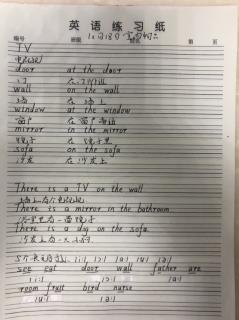 英语练习纸
编号 班级 姓名 第 页
TV
电视机
door at the door
门 在门旁
wall on the wall
墙 在墙上
window at the window
窗户 在窗户旁边
mirror in the mirror
镜子 在镜子里
sofa on the sofa
沙发 在沙发上
There is a TV on the wall
墙上有个电视机
There is a mirror in the bathroom
浴室里有一面镜子
There is a dog on the sofa
沙发上有一只小狗
5个长元音 /i:/ /ɔ:/ /a:/ /u:/ /ə:/
see eat door wall father are
/i:/ /ɔ:/ /a:/
room fruit bird nurse
/u:/ /ə:/